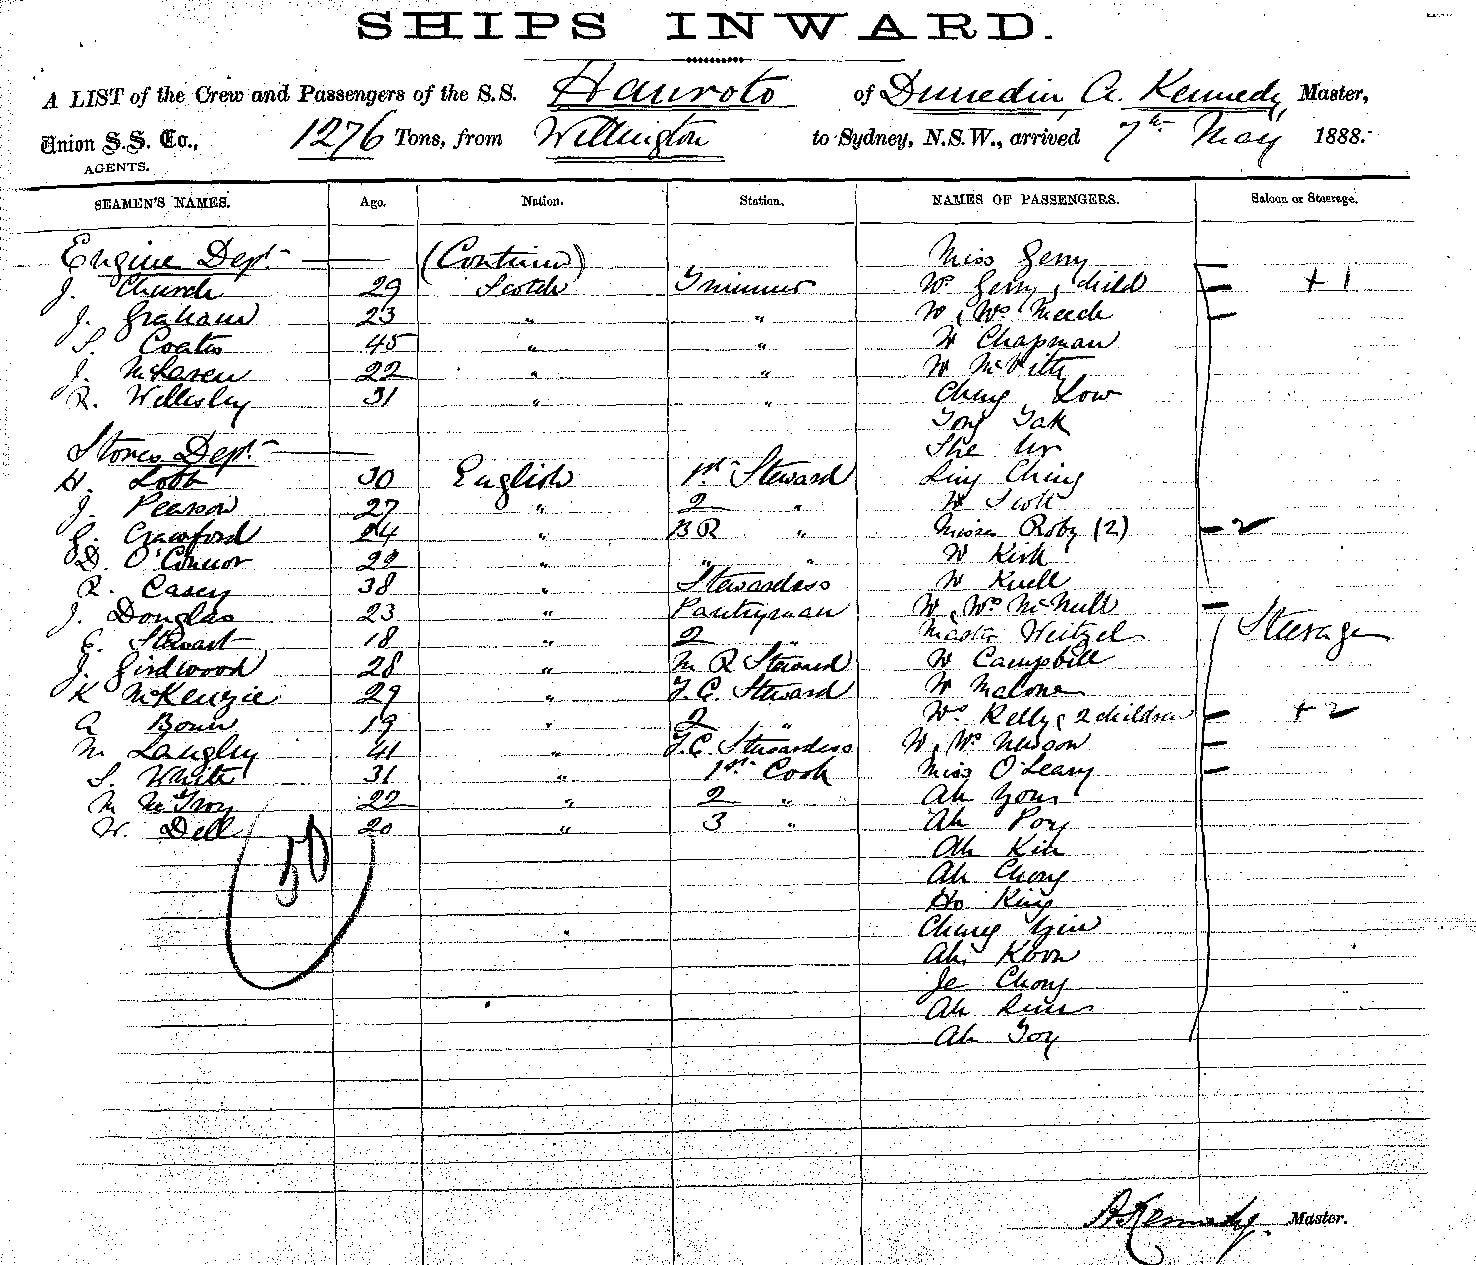 SHIPS INWARD.
A LIST of the Crew and Passengers of the S.S. Hauroto of Dunedin, A. Kennedy, Master,
Union S.S. Co., 1276 Tons, from Wellington to Sydney, N.S.W., arrived 7th May 1888.
AGENTS.
SEAMEN'S NAMES. Age. Nation. Station. NAMES OF PASSENGERS. Saloon or Steerage.
Miss Gerry
Engine Dept. (Continued)
J. Church 29 Scotch Trimmer Mrs Gerry & child + 1
J. Graham 23 " " Mr & Mrs Meech
S. Coates 45 " " Mr Chapman
J. McLaren 22 " " Mr McVitty
R. Wellesley 31 " " Cheng Low
Tong Tak
Stores Dept. She
H. Lobb 30 English 1st Steward Ling Ching
J. Pearson 27 " 2 " Mr Scott
G. Crawford 24 " BR " Misses Roby (2) 2
D. O'Connor 22 " " " Mr Kirk
R. Casey 38 " Stewardess Mr Knell
J. Douglas 23 " Pantryman Mr & Mrs McNull
E. Stewart 18 " 2 " Master Weitzel Steerage
J. Girdwood 28 " M R Steward Mr Campbell
K McKenzie 29 " F.C. Steward Mr Malone
A 19 " 2 " Mrs Kelly & 2 children + 2
M Langley 41 " F.C. Stewardess Mr & Mrs Newson
S. White 31 " 1st Cook Miss O'Leary
M McTroy 22 " 2 " Ah
W. Dell 20 " 3 " Ah Poy
50
Ah Kin
Ah Chong
Ho King
Chung
Ah Koon
Je Chong
Ah
Ah Toy
A Kennedy. Master.